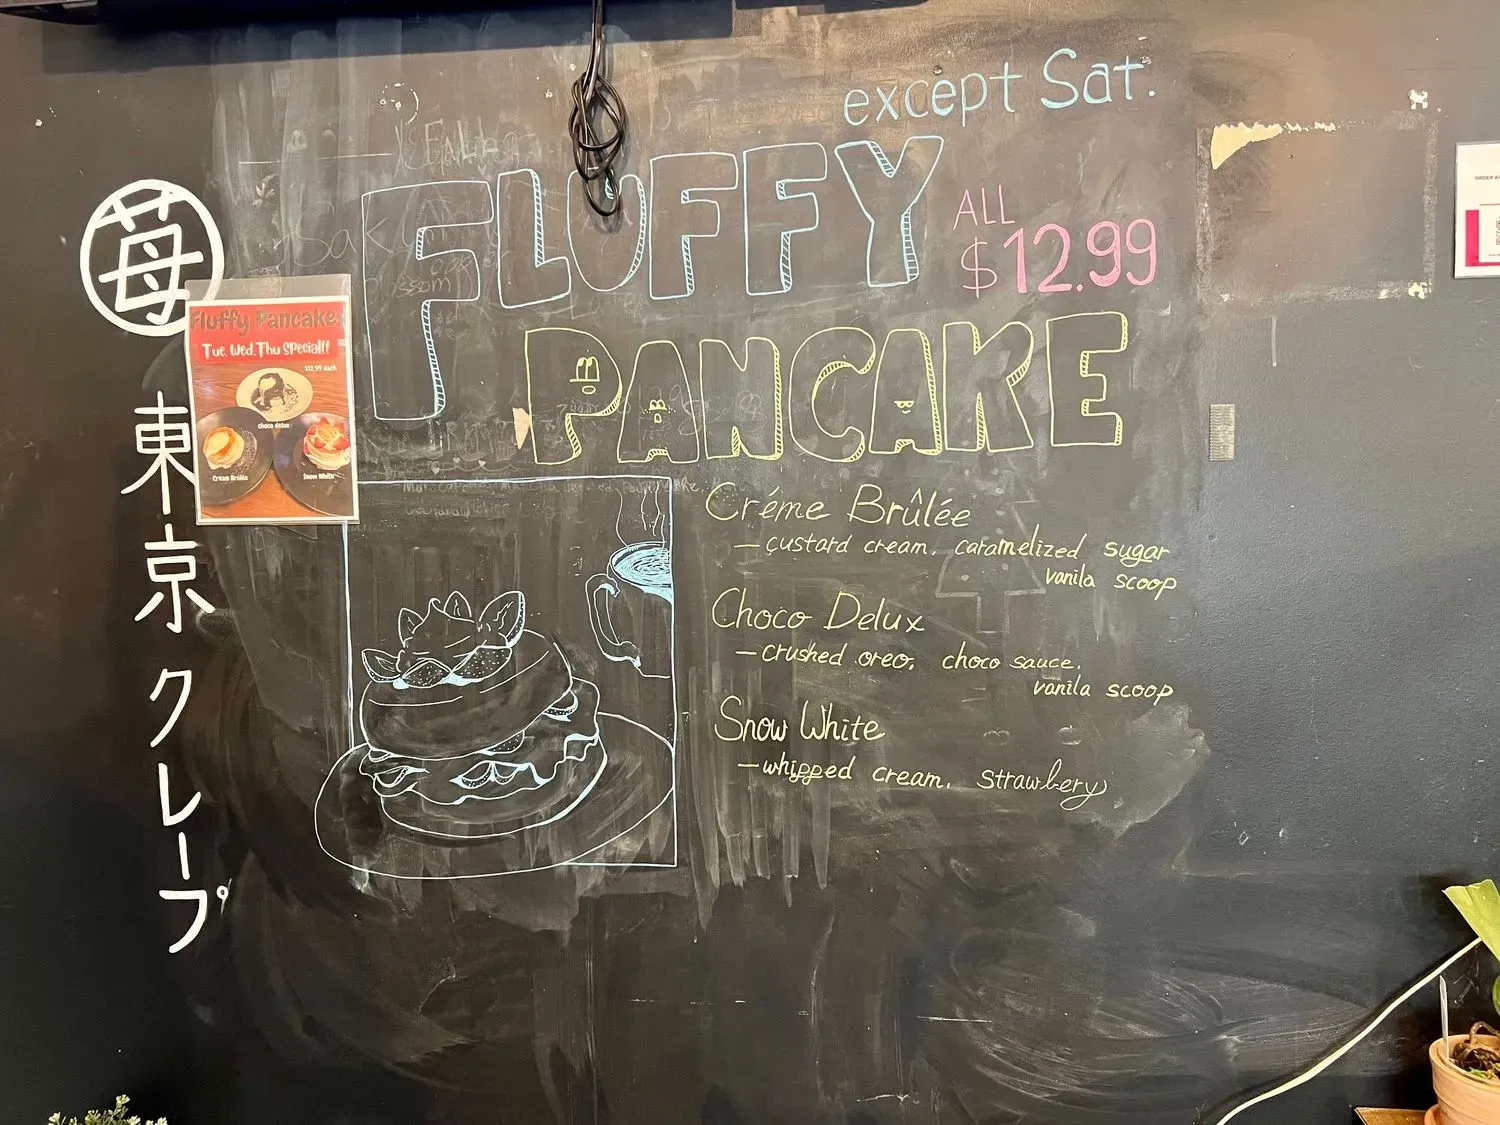 except Sat.
FLUFFY
ALL
$12.99
PANCAKE
苺
東京クレープ
Fluffy Pancakes
Tue, Wed, Thu SPecial!!
$12.99 each
choco delux
Cream Brûlée
Snow White
Créme Brûlée
— custard cream, caramelized sugar
vanila scoop
Choco Delux
— crushed oreo, choco sauce,
vanila scoop
Snow White
— whipped cream, strawbery